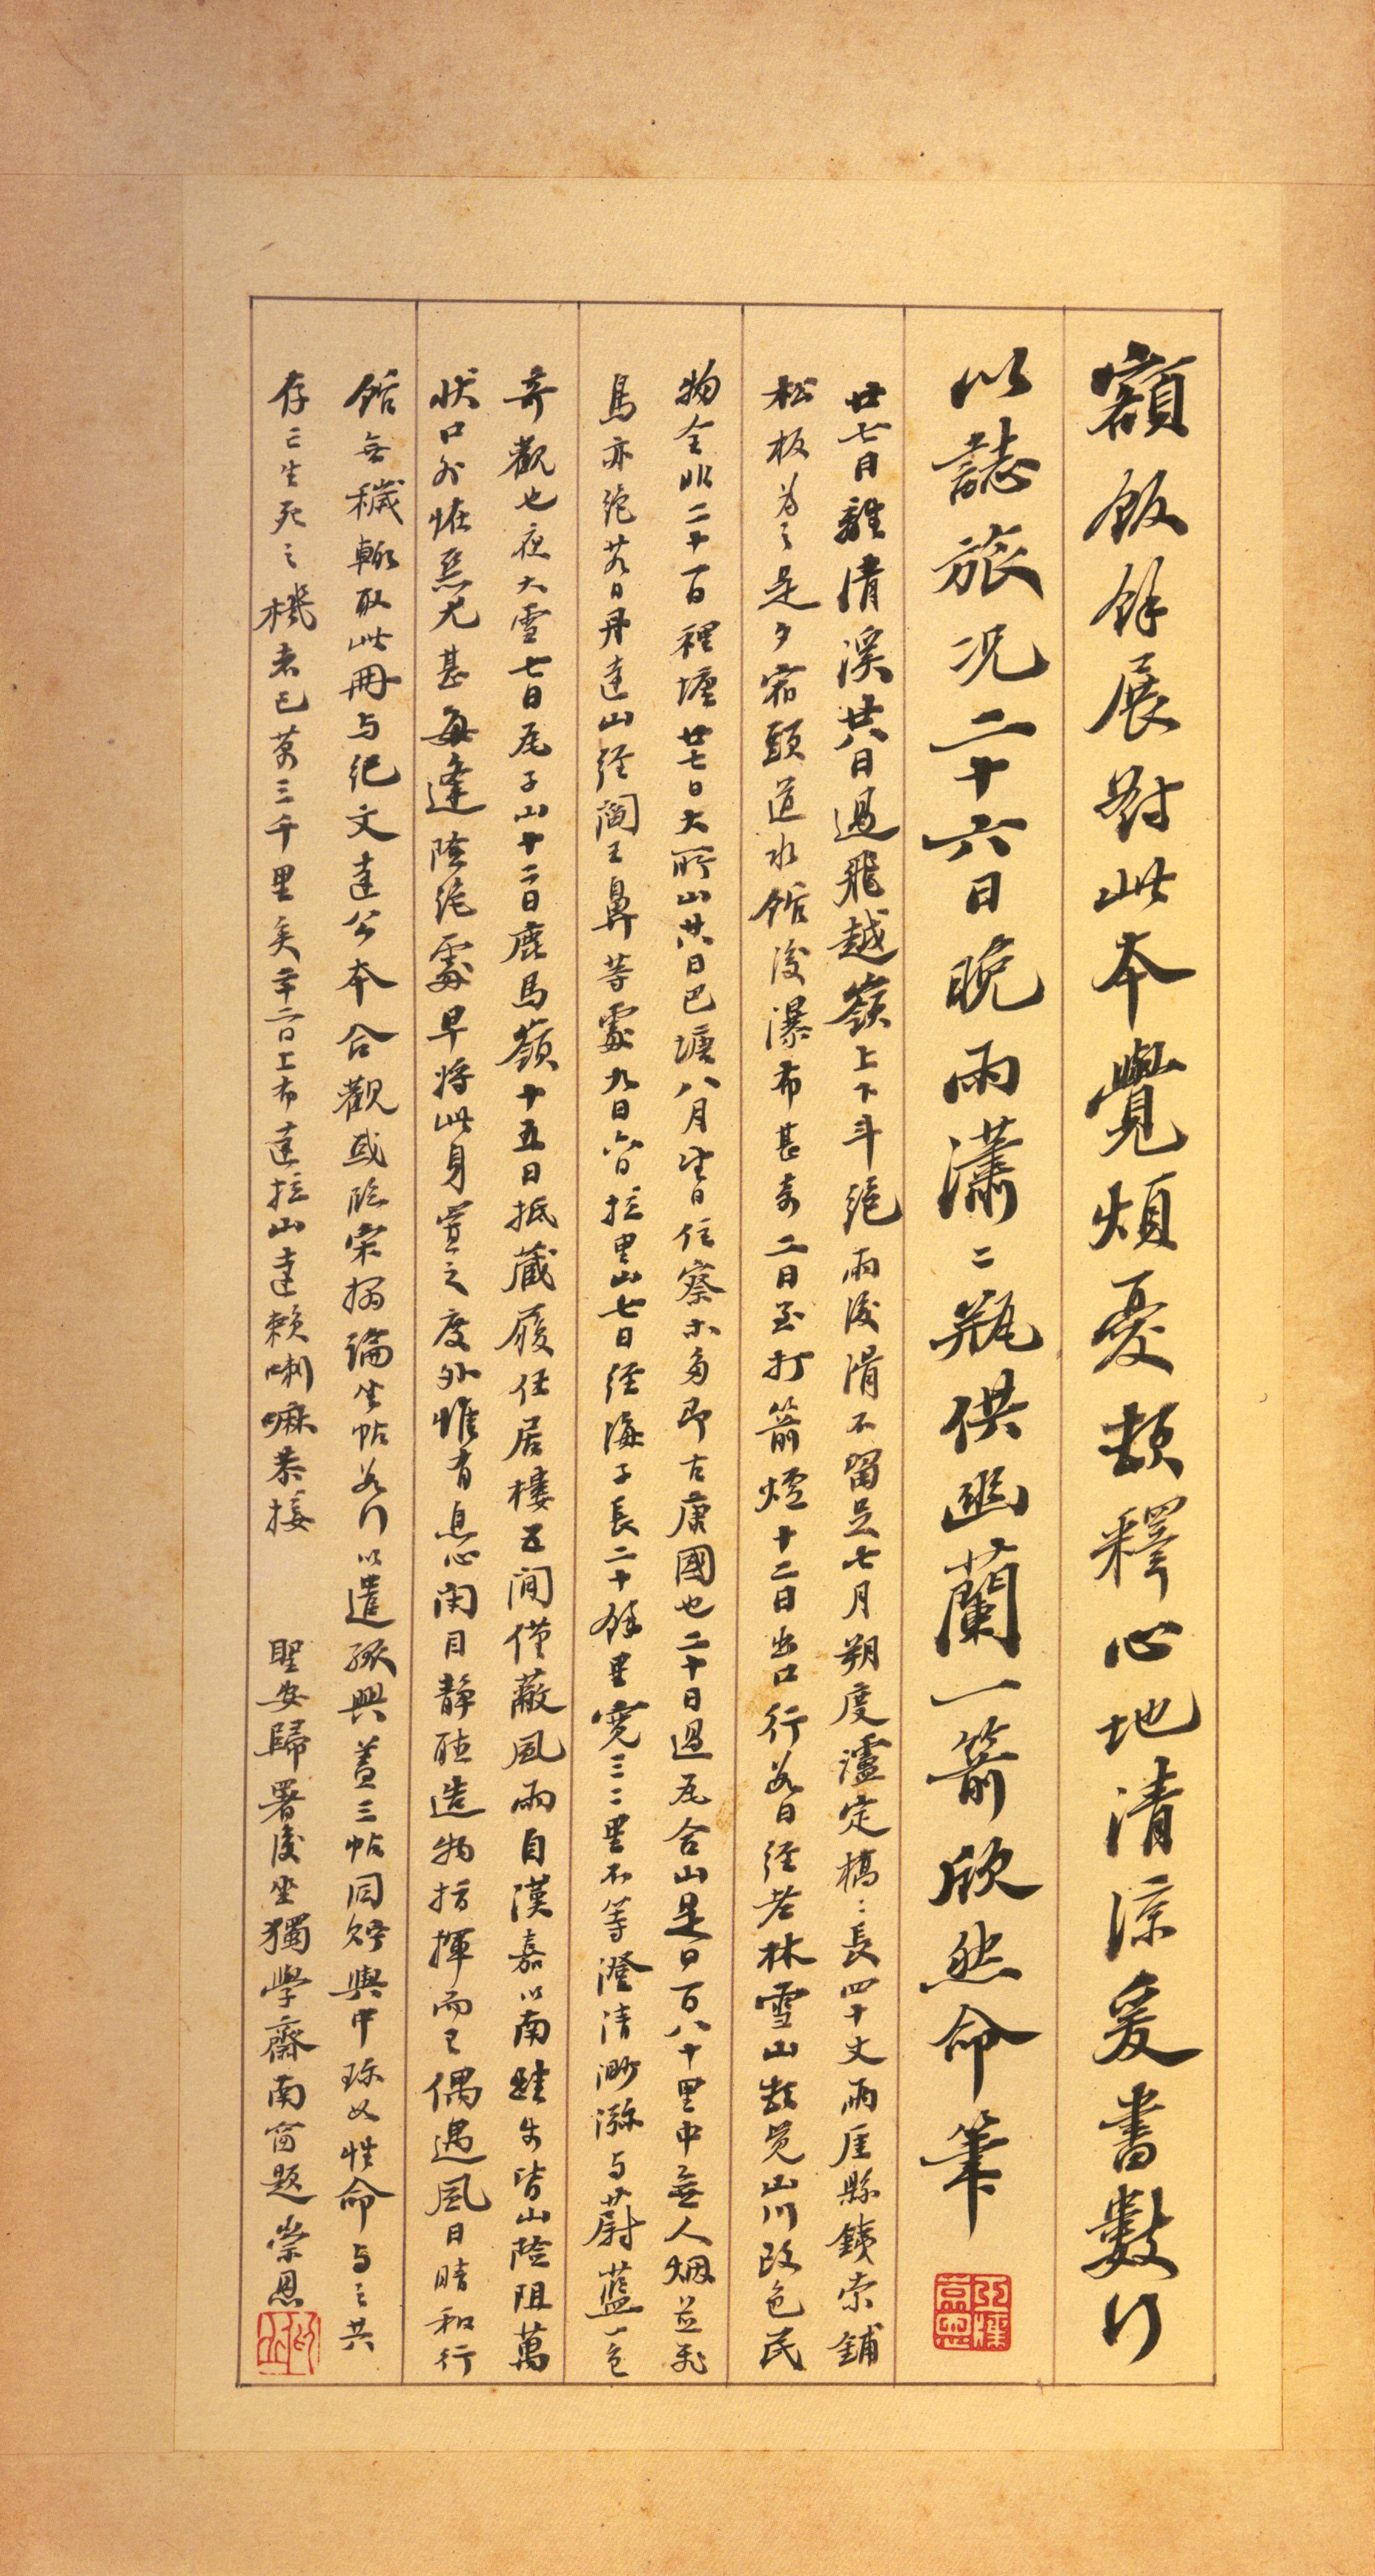 額飯餘展對此本覺煩憂頓釋心地清涼爰書數行
以誌旅况二十六日晚雨瀟二瓶供幽蘭一箭欣然命筆
廿七日離清溪廿八日過飛越嶺上下斗絕雨後滑不留足七月朔度瀘定橋：長四十丈兩厓縣鐵索鋪
松板為之是夕宿頭道水館後瀑布甚奇二日至打箭爐十二日出口行數日經老林雪山數覺山川改色民
物全非二十一日裡塘廿七日大所山廿八日巴塘八月望日住察木多即古康國也二十日過瓦合山是日百八十里中無人烟並飛
鳥亦絕廿九日丹達山經閻王鼻等處九月六日拉里山七日經海子長二十餘里寬三二里不等澄清渺瀰与蔚藍一色
奇觀也夜大雪七日瓦子山十二日鹿馬嶺十五日抵藏履任居樓五間僅蔽風雨自漢嘉以南蛙步皆山險阻萬
狀口外惟惡尤甚每逢險絕處早將此身置之度外惟有息心閉目靜聽造物指揮而已偶遇風日晴和行
館無穢輒取此冊与紀文達公本合觀或臨宋搨論坐帖數行以遣孤興蓋三帖同貯輿中珍如性命与之共
存亡生死之機者已萬三千里矣辛二日上布達拉山達賴喇嘛恭接 聖安歸署後坐獨學齋南窗題 崇恩